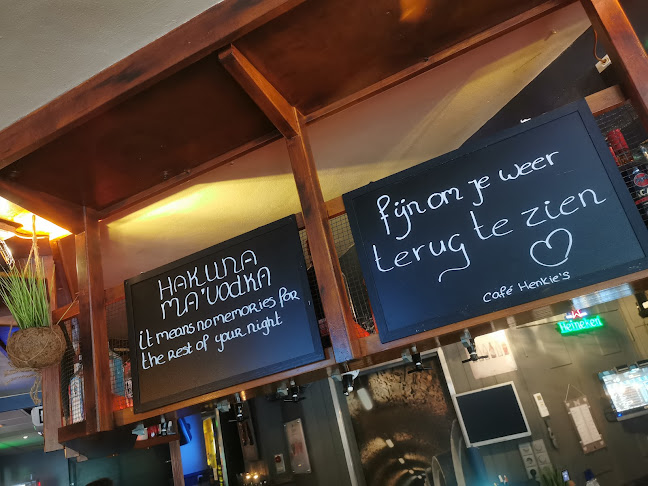 HAKUNA
MA'VODKA
it means no memories for
the rest of your night
fijn om je weer
terug te zien
Café Henkie's
Heineken